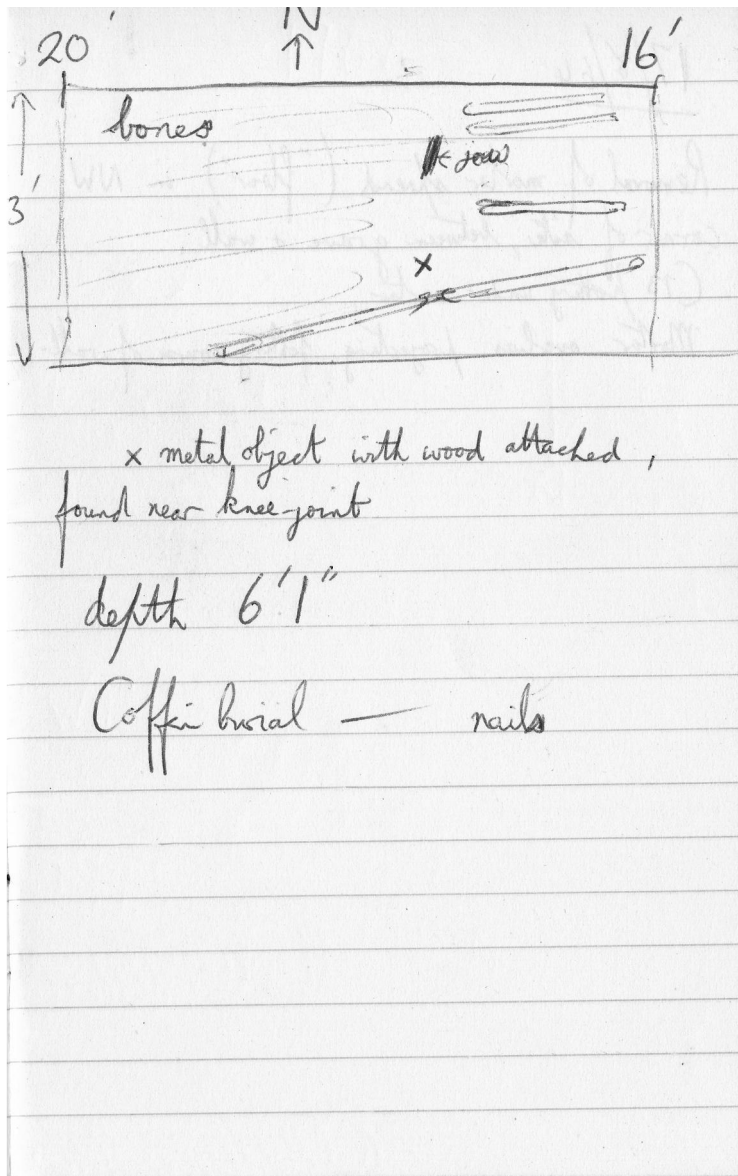 N
20' 16'
bones
← jaw
3'
x
x metal object with wood attached,
found near knee-joint
depth 6'1"
Coffin burial — nails